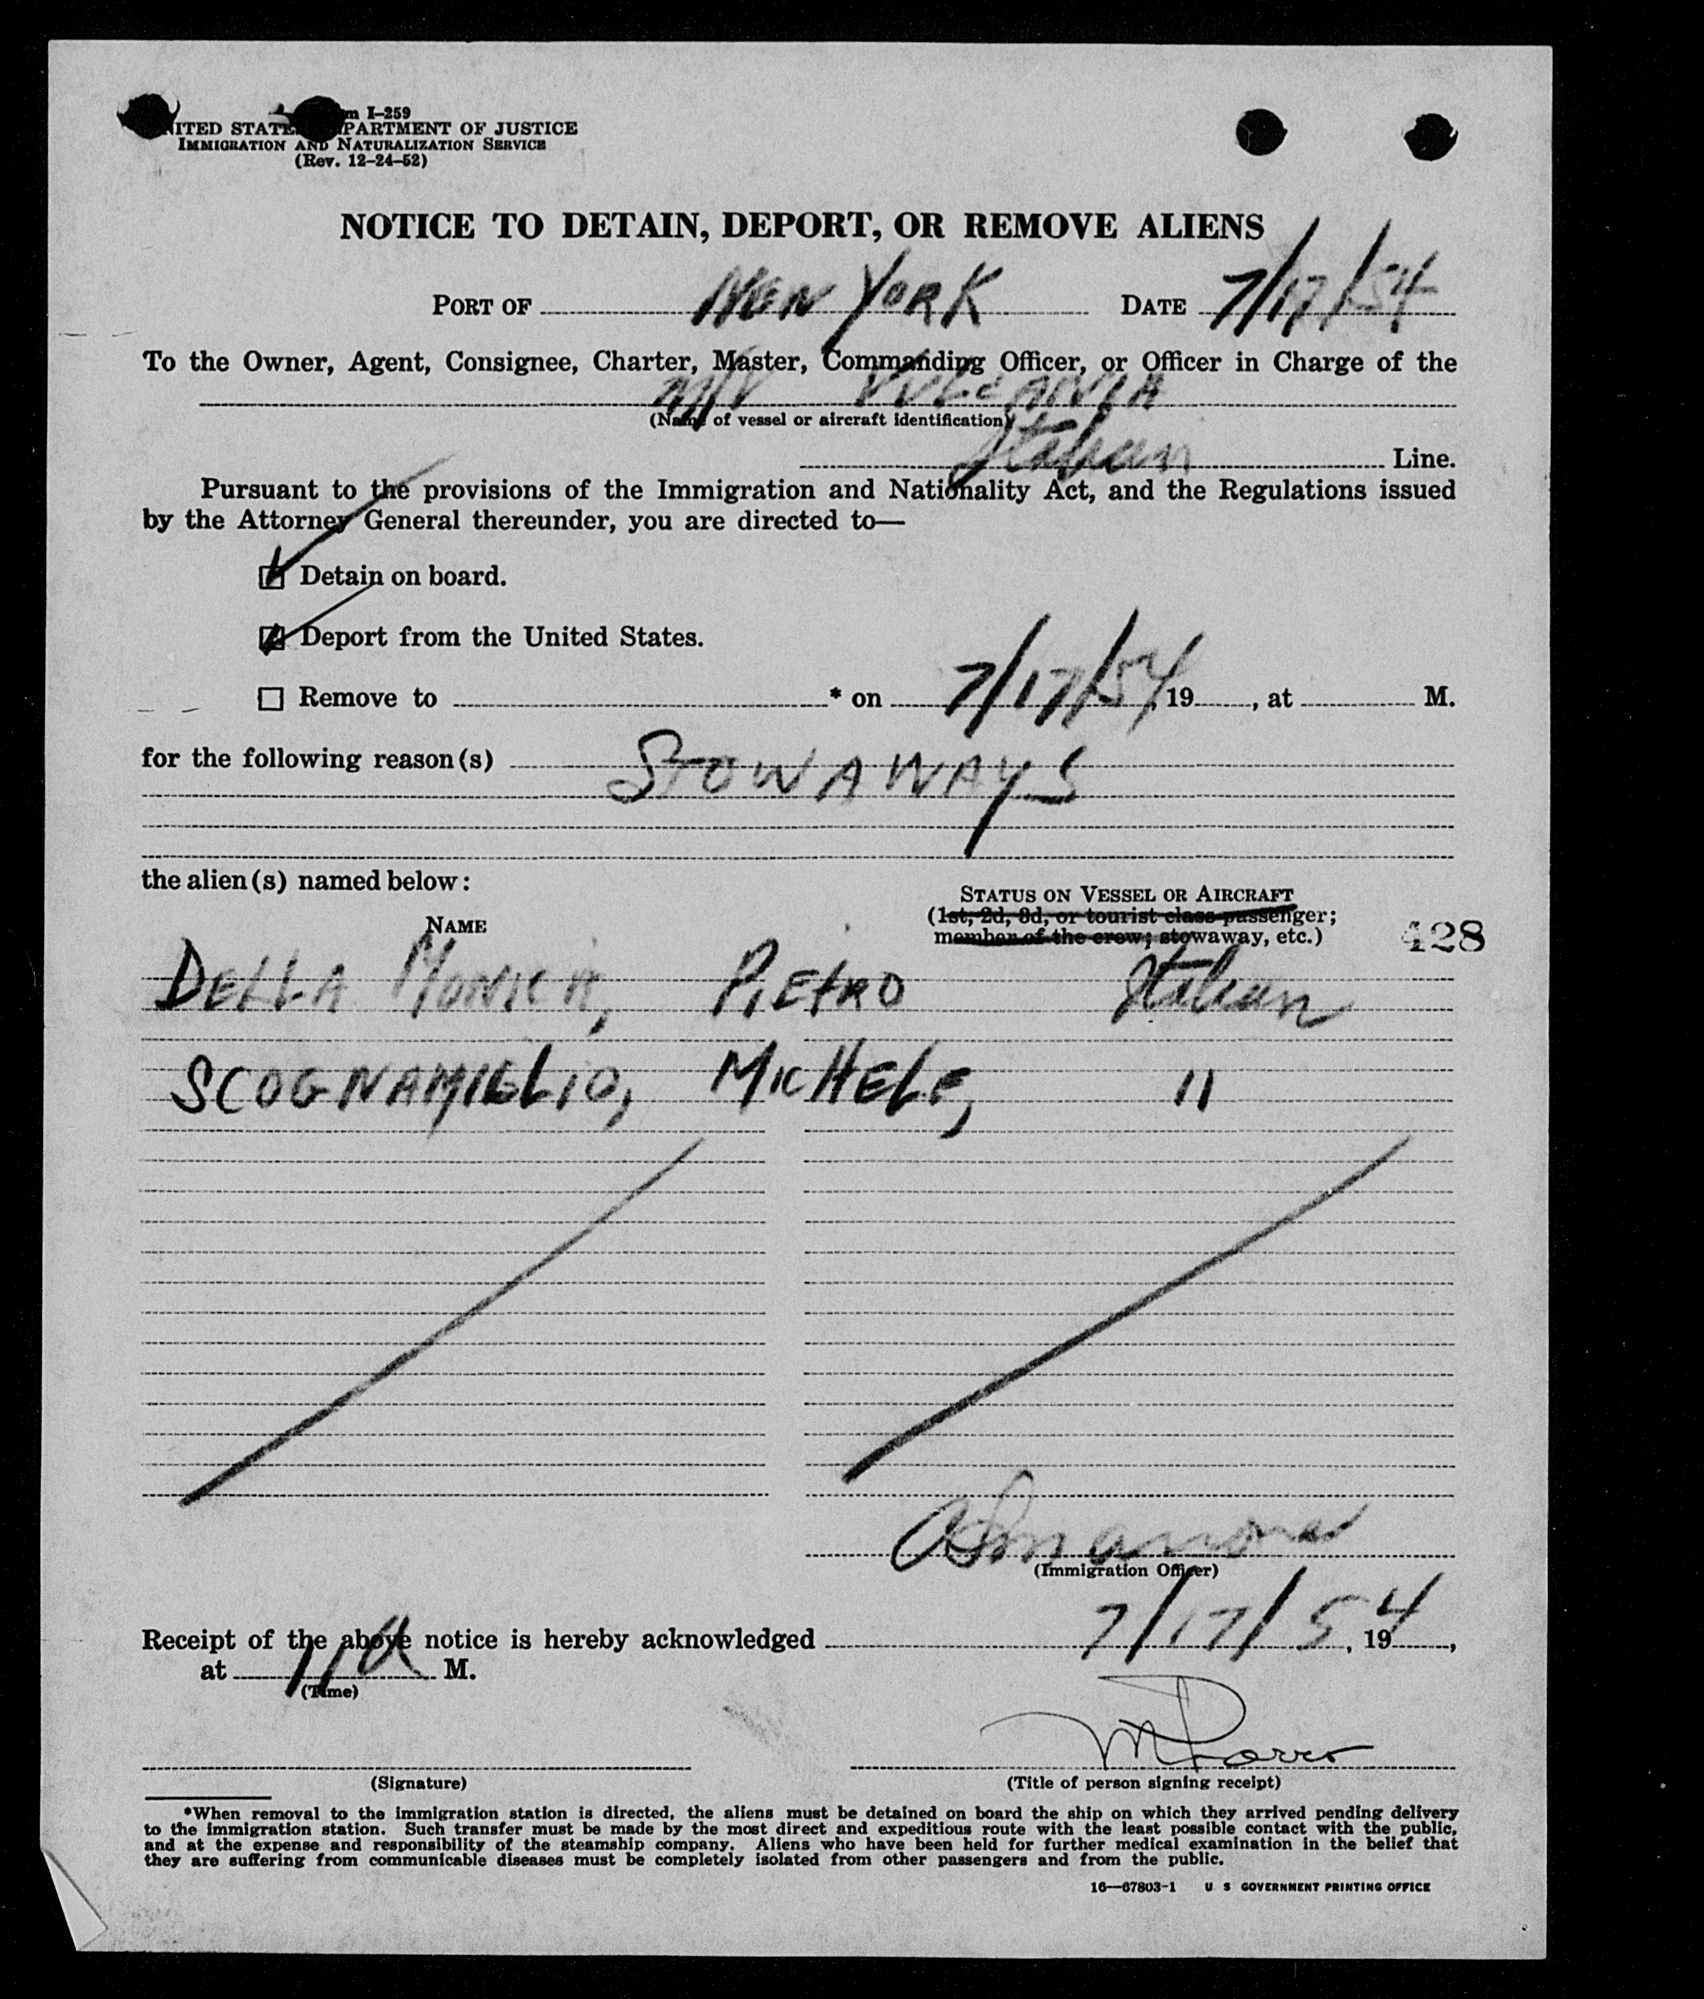 m I-259
ITED STATE PARTMENT OF JUSTICE
IMMIGRATION AND NATURALIZATION SERVICE
(Rev. 12-24-52)
NOTICE TO DETAIN, DEPORT, OR REMOVE ALIENS
PORT OF NEW YORK DATE 7/17/54
To the Owner, Agent, Consignee, Charter, Master, Commanding Officer, or Officer in Charge of the
M/V VULCANIA
(Name of vessel or aircraft identification)
Italian Line.
Pursuant to the provisions of the Immigration and Nationality Act, and the Regulations issued
by the Attorney General thereunder, you are directed to—
Detain on board.
Deport from the United States.
Remove to * on 7/17/54 19 , at M.
for the following reason(s) STOWAWAYS
the alien(s) named below:
STATUS ON VESSEL OR AIRCRAFT
(1st, 2d, 3d, or tourist class passenger;
NAME
member of the crew; stowaway, etc.)
428
DELLA MONICA, PIETRO Italian
SCOGNAMIGLIO, MICHELE, "
(Immigration Officer)
Receipt of the above notice is hereby acknowledged 7/17/54, 19 ,
at 11 A M.
(Time)
M Porro
(Signature) (Title of person signing receipt)
*When removal to the immigration station is directed, the aliens must be detained on board the ship on which they arrived pending delivery
to the immigration station. Such transfer must be made by the most direct and expeditious route with the least possible contact with the public,
and at the expense and responsibility of the steamship company. Aliens who have been held for further medical examination in the belief that
they are suffering from communicable diseases must be completely isolated from other passengers and from the public.
16—67803-1 U S GOVERNMENT PRINTING OFFICE